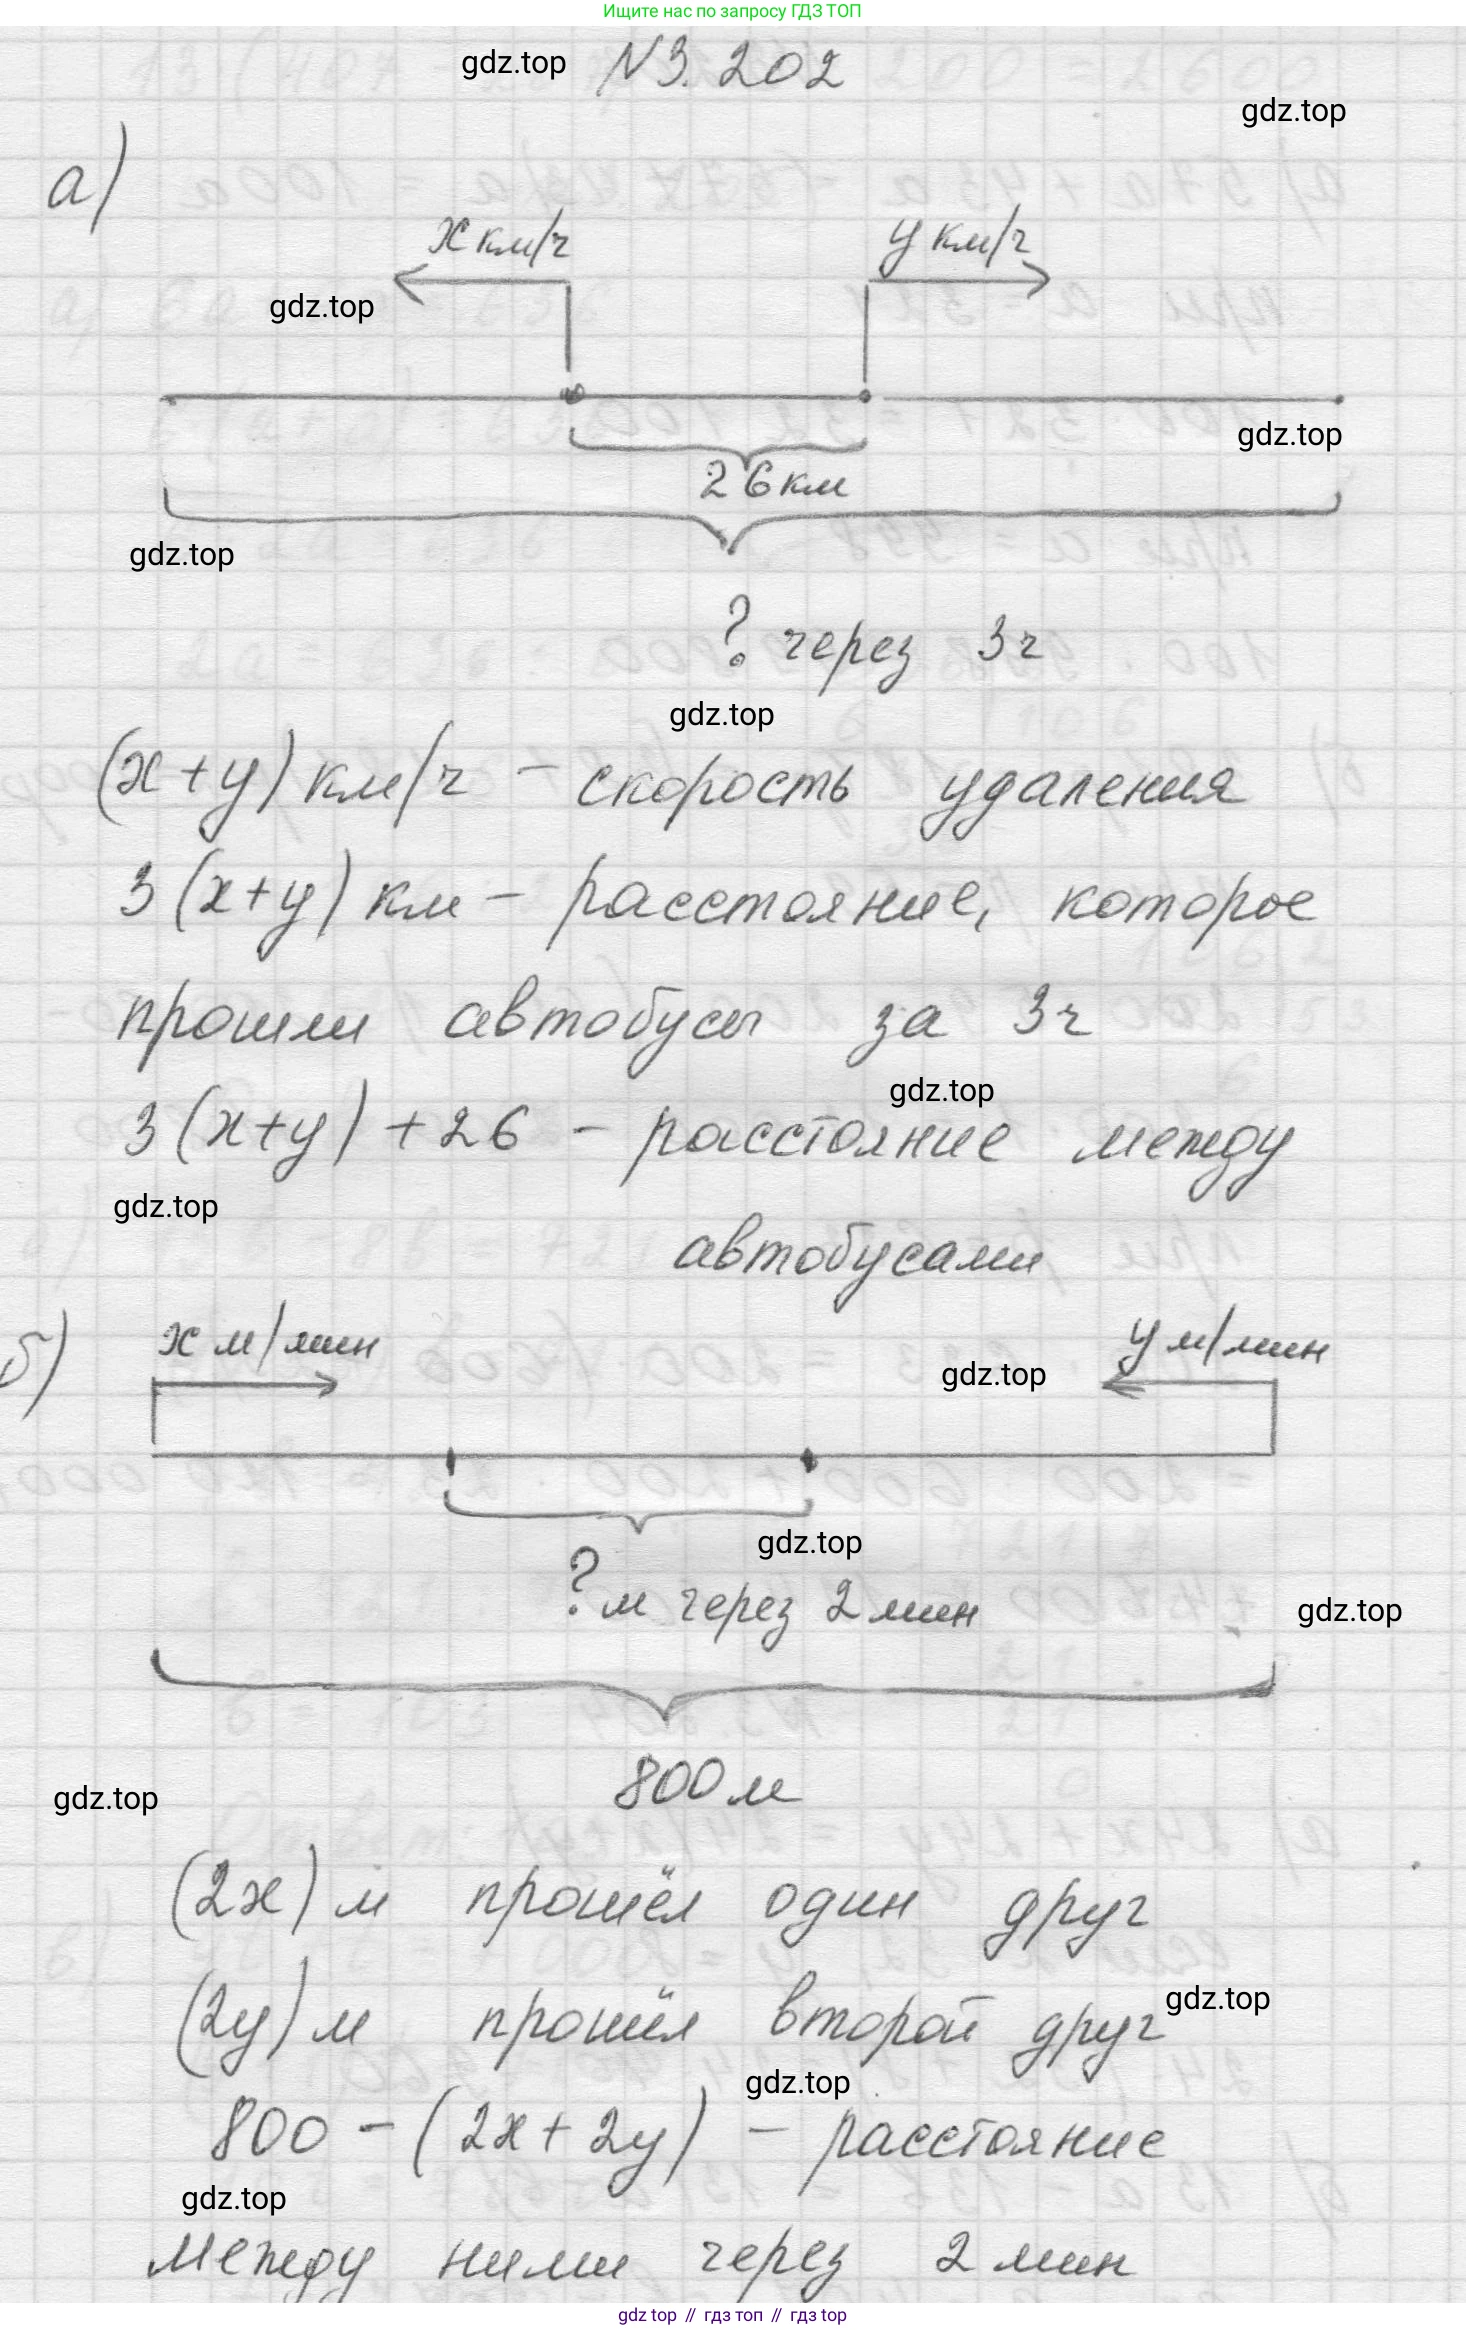 Ищите нас по запросу ГДЗ ТОП
gdz.top
№3.202
gdz.top
а)
х км/ч
у км/ч
gdz.top
gdz.top
26 км
gdz.top
? через 3ч
gdz.top
(х+у) км/ч – скорость удаления
3(х+у) км – расстояние, которое
прошли автобусы за 3ч
gdz.top
3(х+у)+26 – расстояние между
gdz.top
автобусами
б)
х м/мин
у м/мин
gdz.top
gdz.top
? м через 2 мин
gdz.top
800 м
gdz.top
(2х) м прошёл один друг
gdz.top
(2у) м прошёл второй друг
gdz.top
800 – (2х + 2у) – расстояние
gdz.top
между ними через 2 мин
gdz top // гдз топ // gdz top